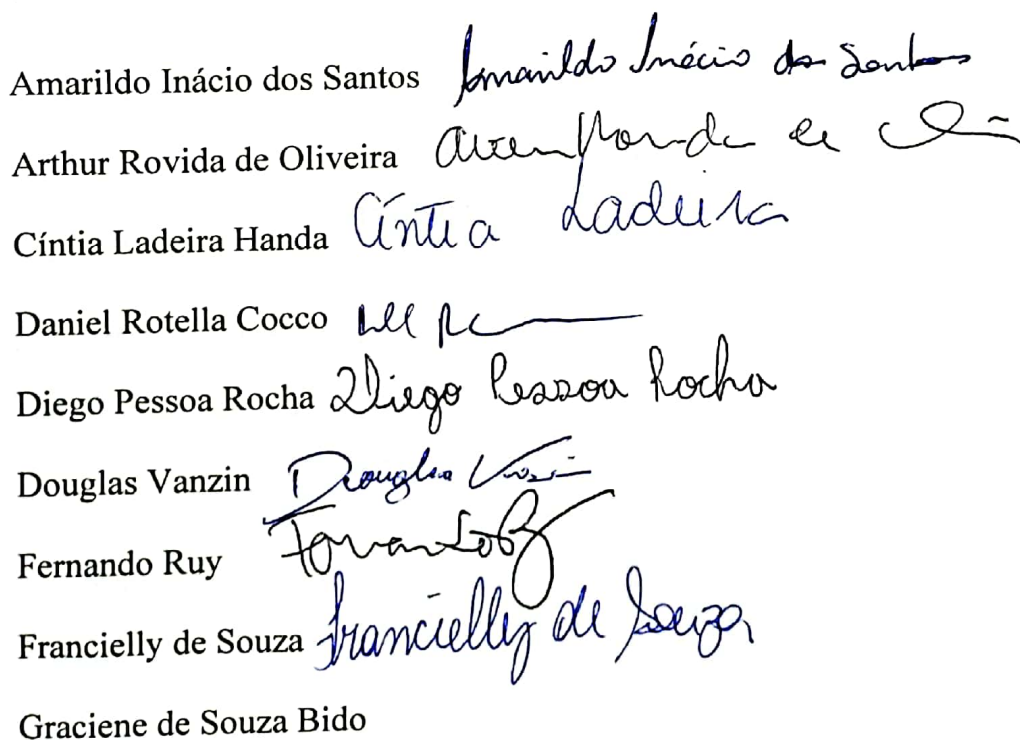 Amarildo Inácio dos Santos Amarildo Inácio dos Santos
Arthur Rovida de Oliveira
Cíntia Ladeira Handa Cíntia Ladeira
Daniel Rotella Cocco
Diego Pessoa Rocha Diego Pessoa Rocha
Douglas Vanzin Douglas Vanzin
Fernando Ruy
Francielly de Souza Francielly de Souza
Graciene de Souza Bido